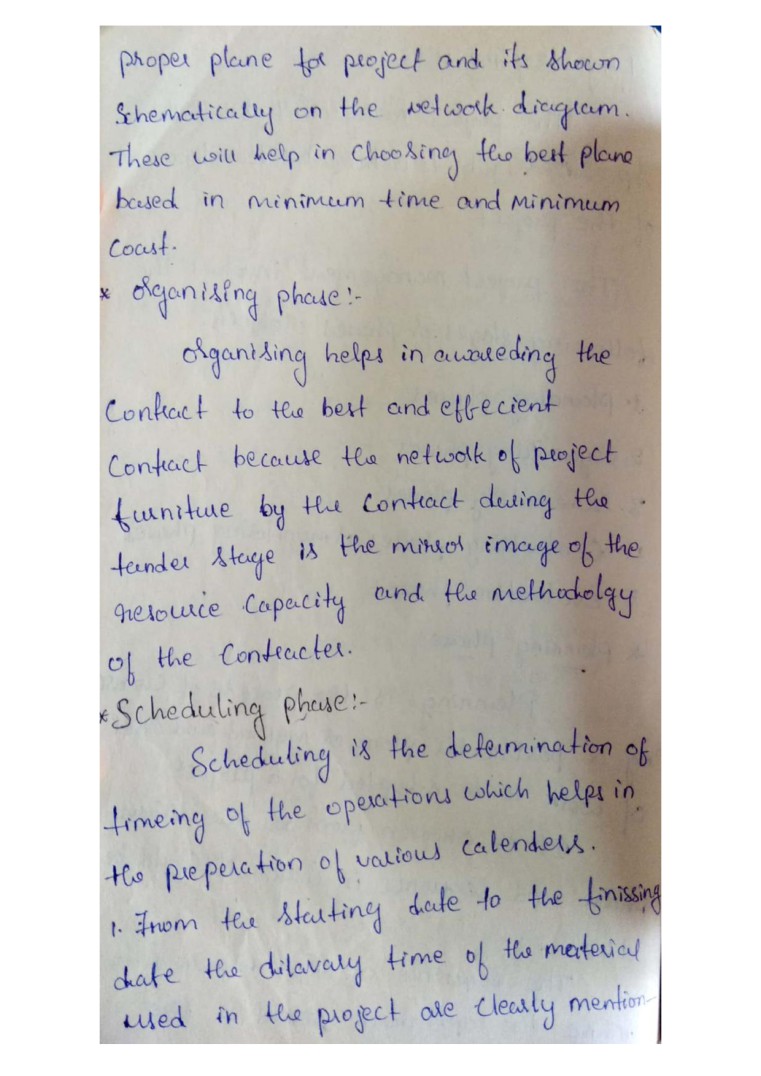 proper plane for project and its shown
Schematically on the network diagram.
These will help in Choosing the best plane
based in minimum time and Minimum
Coast.
* Organising phase:-
Organising helps in awareding the
Contract to the best and effecient
Contract because the network of project
furniture by the Contract during the
tender Stage is the mirror image of the
resource Capacity and the methodolgy
of the Contracter.
* Scheduling phase:-
Scheduling is the determination of
timeing of the operations which helps in
the preperation of various calenders.
1. From the Starting date to the finissing
date the dilavary time of the material
used in the project are Clearly mention-